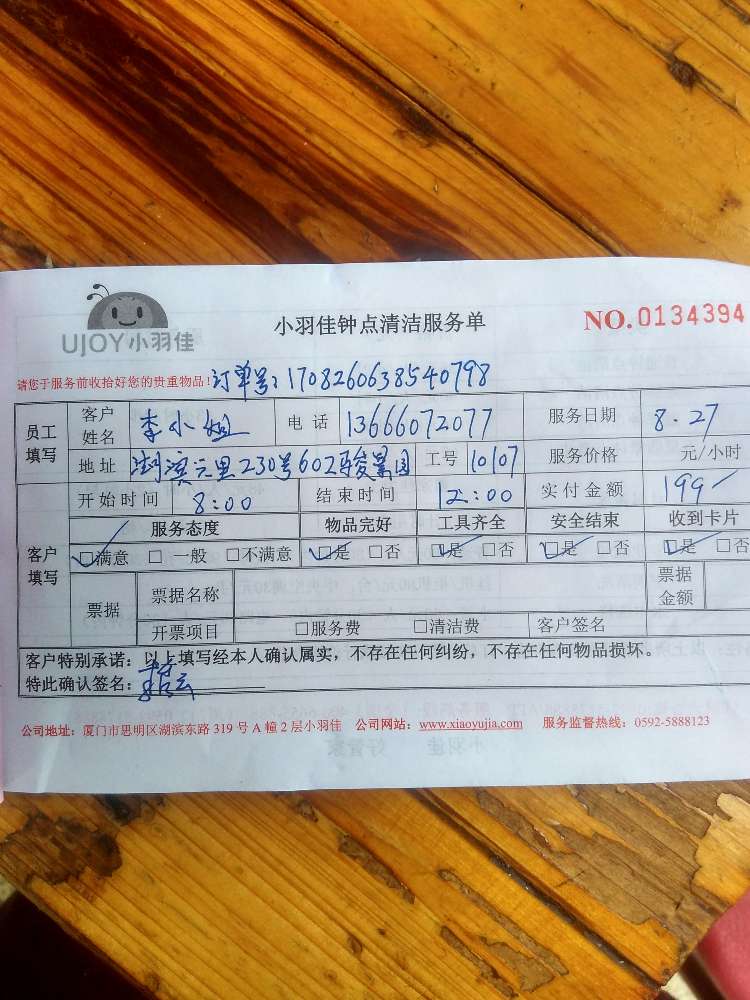 UJOY小羽佳
小羽佳钟点清洁服务单
NO.0134394
请您于服务前收拾好您的贵重物品! 订单号:1708260638540798
员工填写 客户姓名 李小姐 电话 13666072077 服务日期 8.27
地址 湖滨六里230号602骏景园 工号 10107 服务价格 元/小时
开始时间 8:00 结束时间 12:00 实付金额 199
客户填写 服务态度 物品完好 工具齐全 安全结束 收到卡片
□满意 □一般 □不满意 □是 □否 □是 □否 □是 □否 □是 □否
票据 票据名称 票据金额
开票项目 □服务费 □清洁费 客户签名
客户特别承诺:以上填写经本人确认属实,不存在任何纠纷,不存在任何物品损坏。
特此确认签名:
公司地址:厦门市思明区湖滨东路 319 号 A 幢 2 层小羽佳 公司网站:www.xiaoyujia.com 服务监督热线:0592-5888123